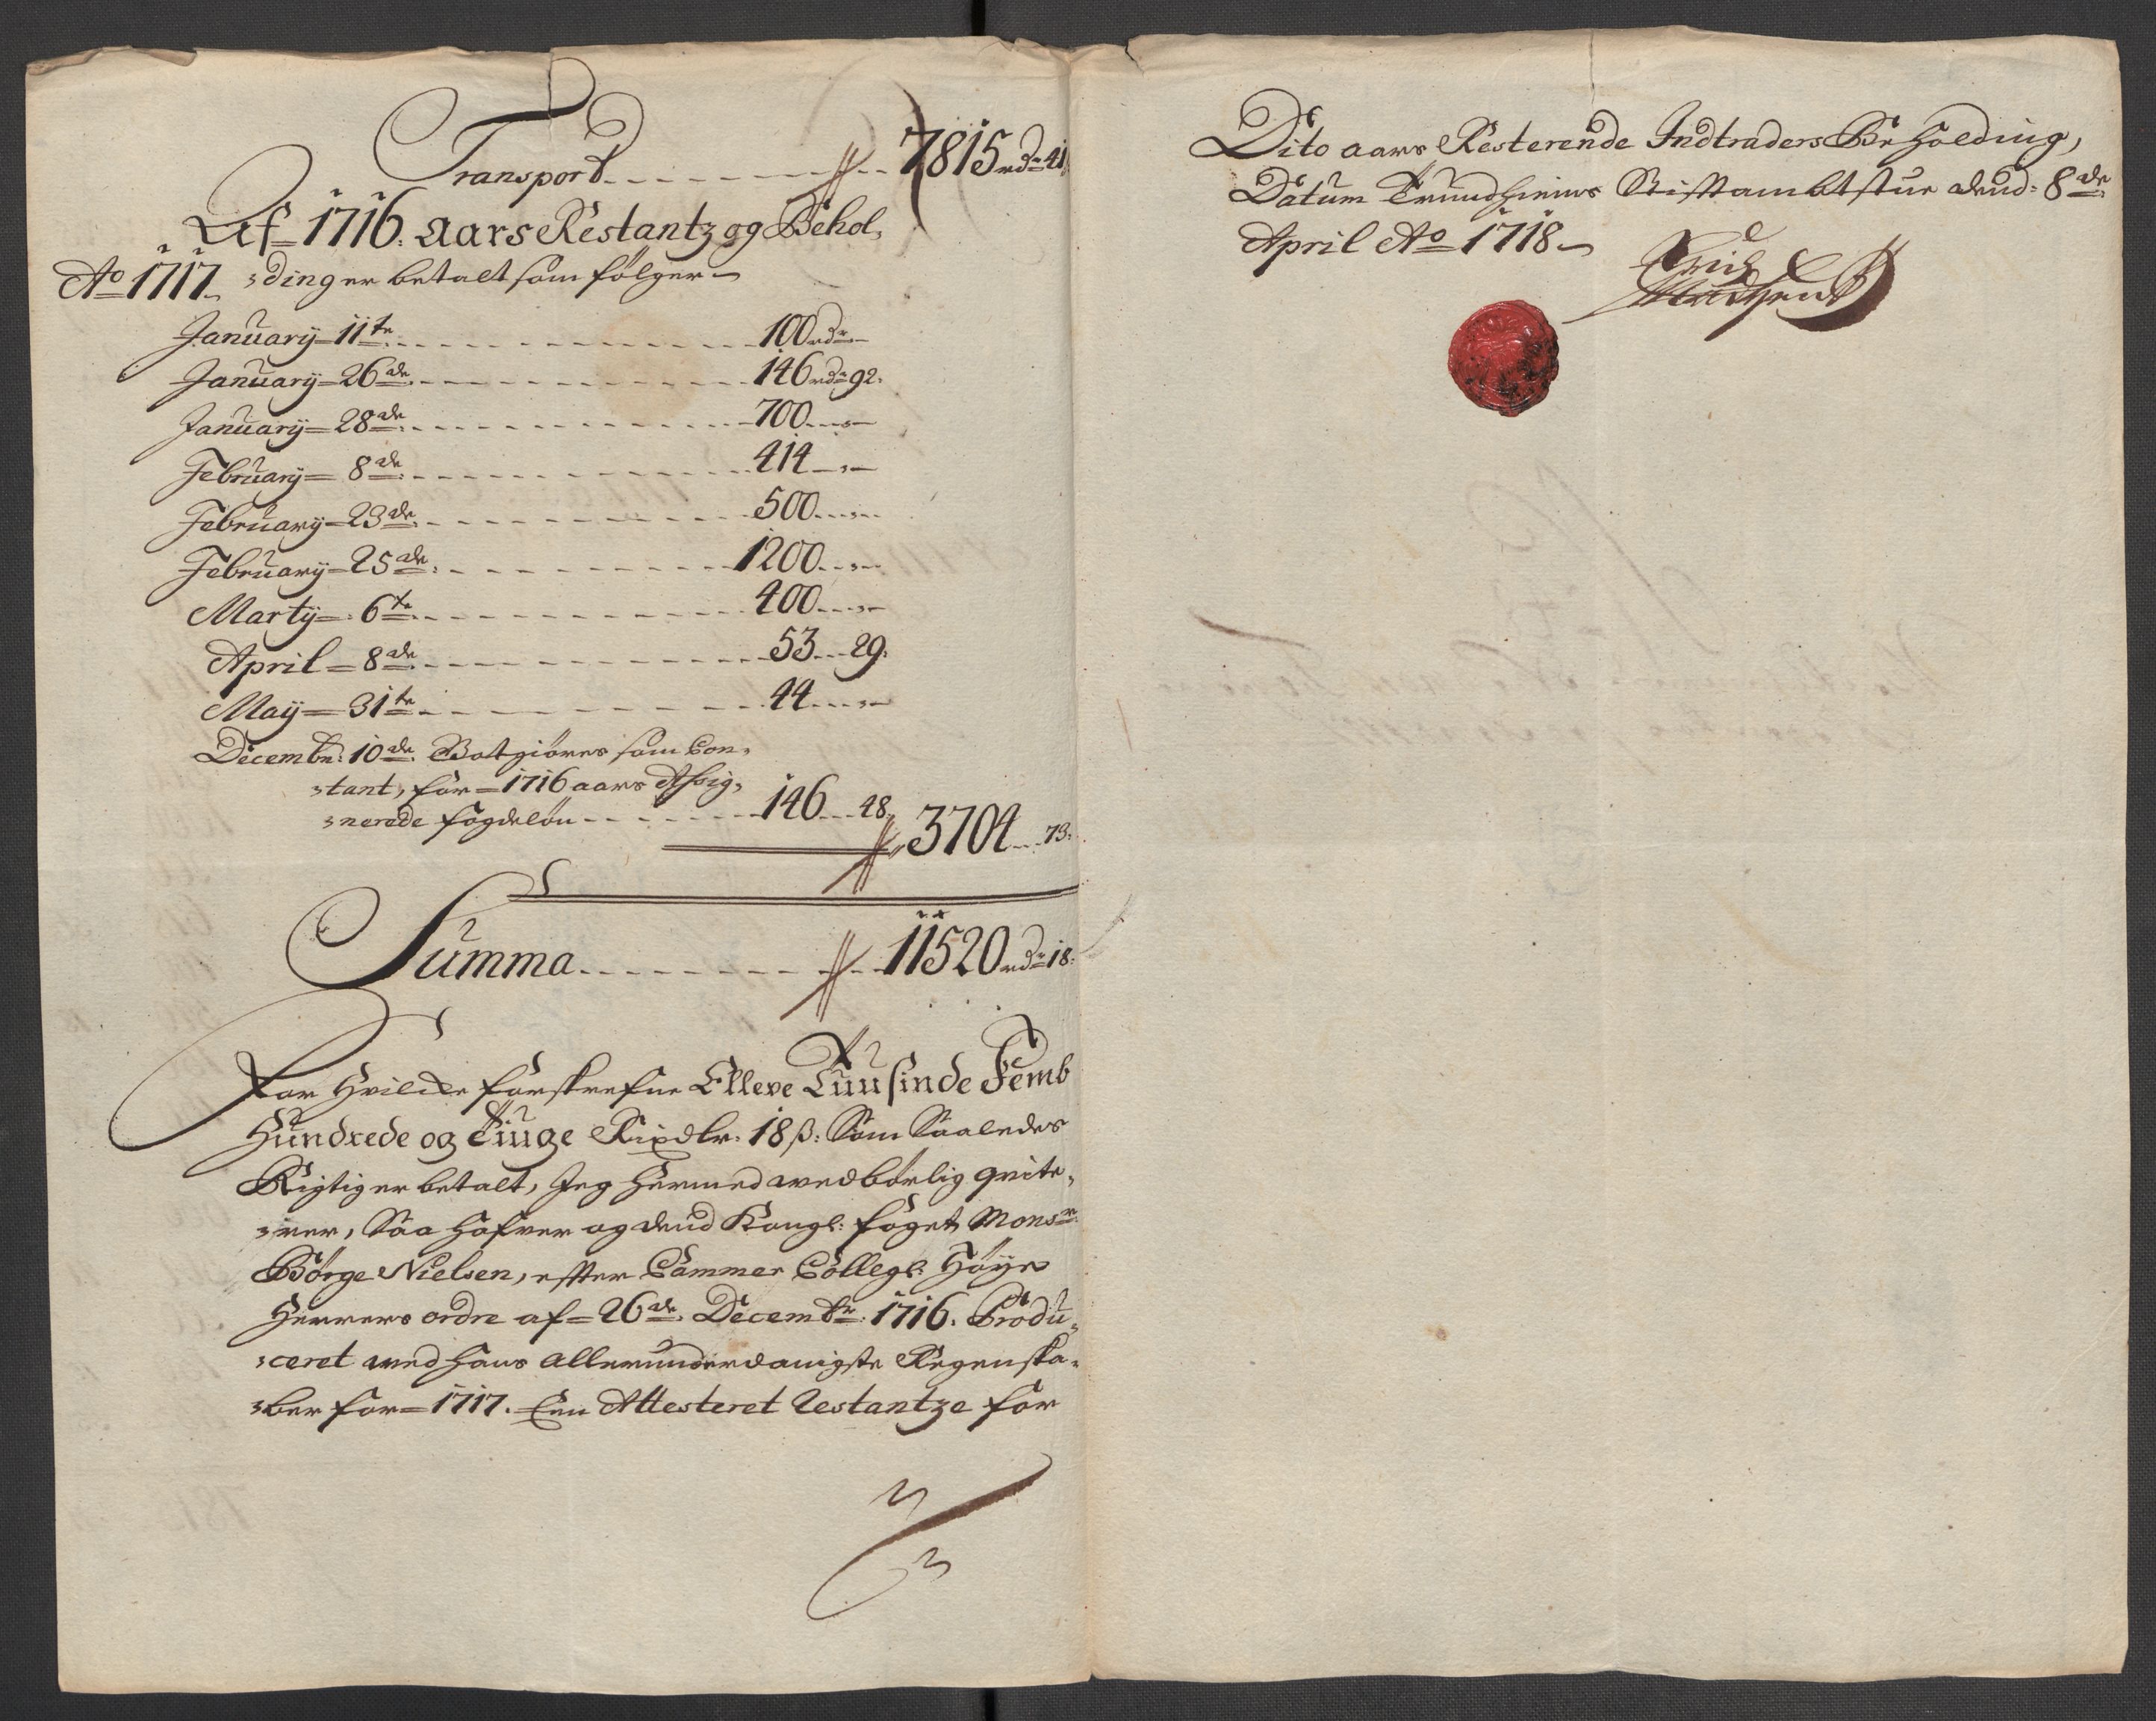 Transport - - - 7815 rdr 41
Af 1716. aars Restantz og Behol,
Ao 1717. ,ding er betalt som følger
January 11te - - - 100 rdr
January 26de - - - 146 rdr 92.
January 28de - - - 700 - -
February 8de - - - 414 - -
February 23de - - - 500 - -
February 25de - - - 1200 - -
Marty 6te - - - 400 - -
April 8de - - - 53 - 29.
May 31te - - - 44 - -
Decembr: 10de Godtgiøres som Con,
,tant, for 1716 aars Assig,
,nerede fogdeløn - - - 146 - 48.
3704 - 73.
Summa - - - 11520 rdr 18.
For Hvilcke forskrefne Elleve Tuusinde Femb
Hundrede og Tiuge Rixdlr. 18 ß: Som Saaledes
Rigtig er betalt, Jeg hermed wedbørlig qvite,
,rer, Saa hafver og dend Kongl: foget Monsr.
Børge Nielsen, efter Cammer Collegl: Høye
Herrers ordre af 26de Decembr: 1716. Produ,
,ceret med hans allerunderdanigste Regenska,
,ber for 1717. Een Attesteret Restantze for
Dito aars Resterende Indtraders Beholding,
Datum Trundhiems Stiftambtstue dend: 8de
April Ao 1718